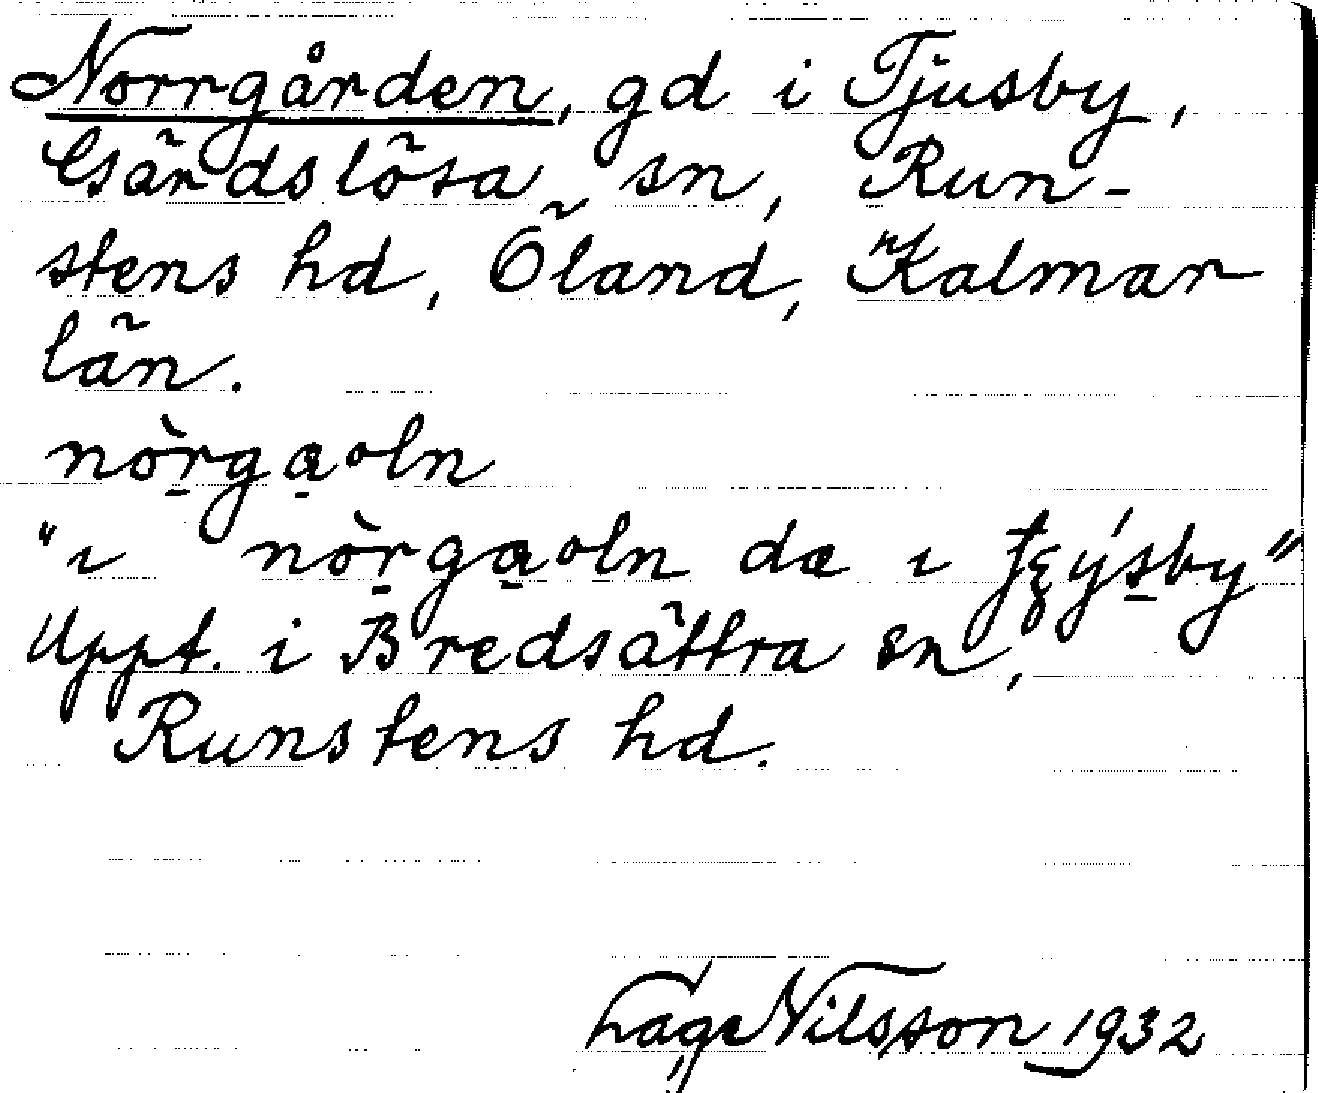 Norrgården, gd i Tjusby,
Gärdslösa sn, Run-
stens hd, Öland, Kalmar
län.
nòr̠ga̠oln
"ı nòr̠ga̠oln dæ ı tʒýs̠by"
Uppt. i Bredsättra sn,
Runstens hd.
Nilsson 1932